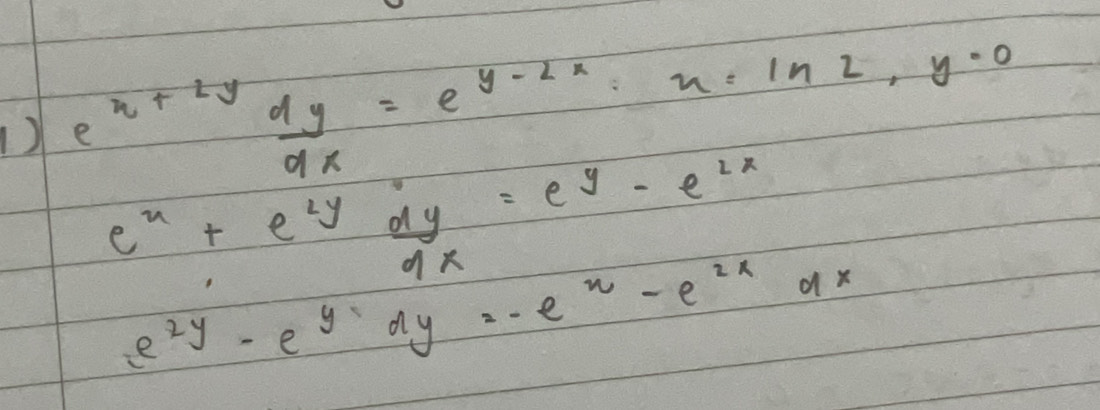 1) e^{x + 2y} dy/dx = e^{y - 2x} : x = ln 2, y = 0
e^x + e^{2y} dy/dx = e^y - e^{2x}
e^{2y} - e^y dy = - e^x - e^{2x} dx